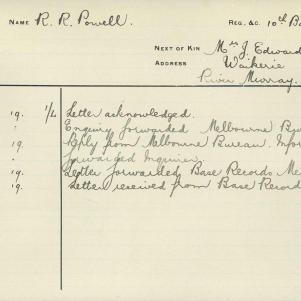 NAME R. R. Powell. REG. &C. 10th Ba
NEXT OF KIN Mrs J. Edward
ADDRESS Waikerie
River Murray.
19. 1/4 Letter acknowledged.
" Enquiry forwarded Melbourne Bu
19 Reply from Melbourne Bureau. Infor
" forwarded Inquirer
19. Letter forwarded Base Records Me
19. Letter received from Base Record